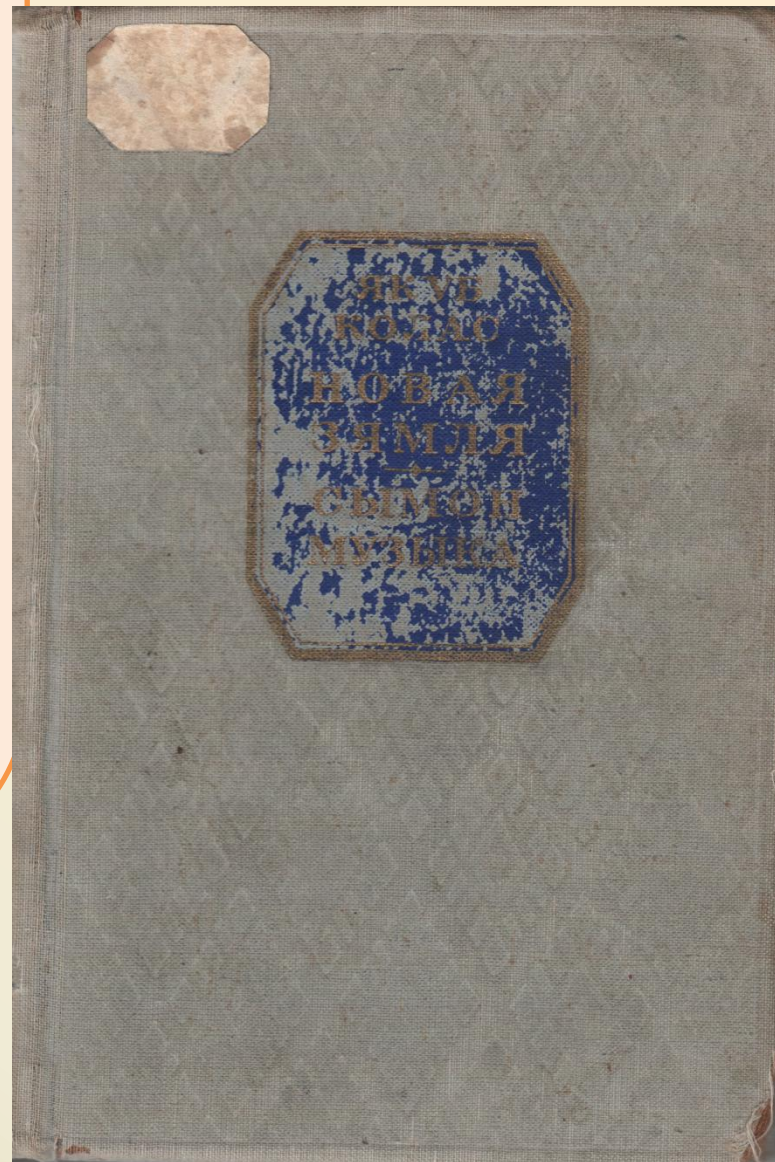 ЯКУБ
КОЛАС
НОВАЯ
ЗЯМЛЯ
СЫМОН
МУЗЫКА